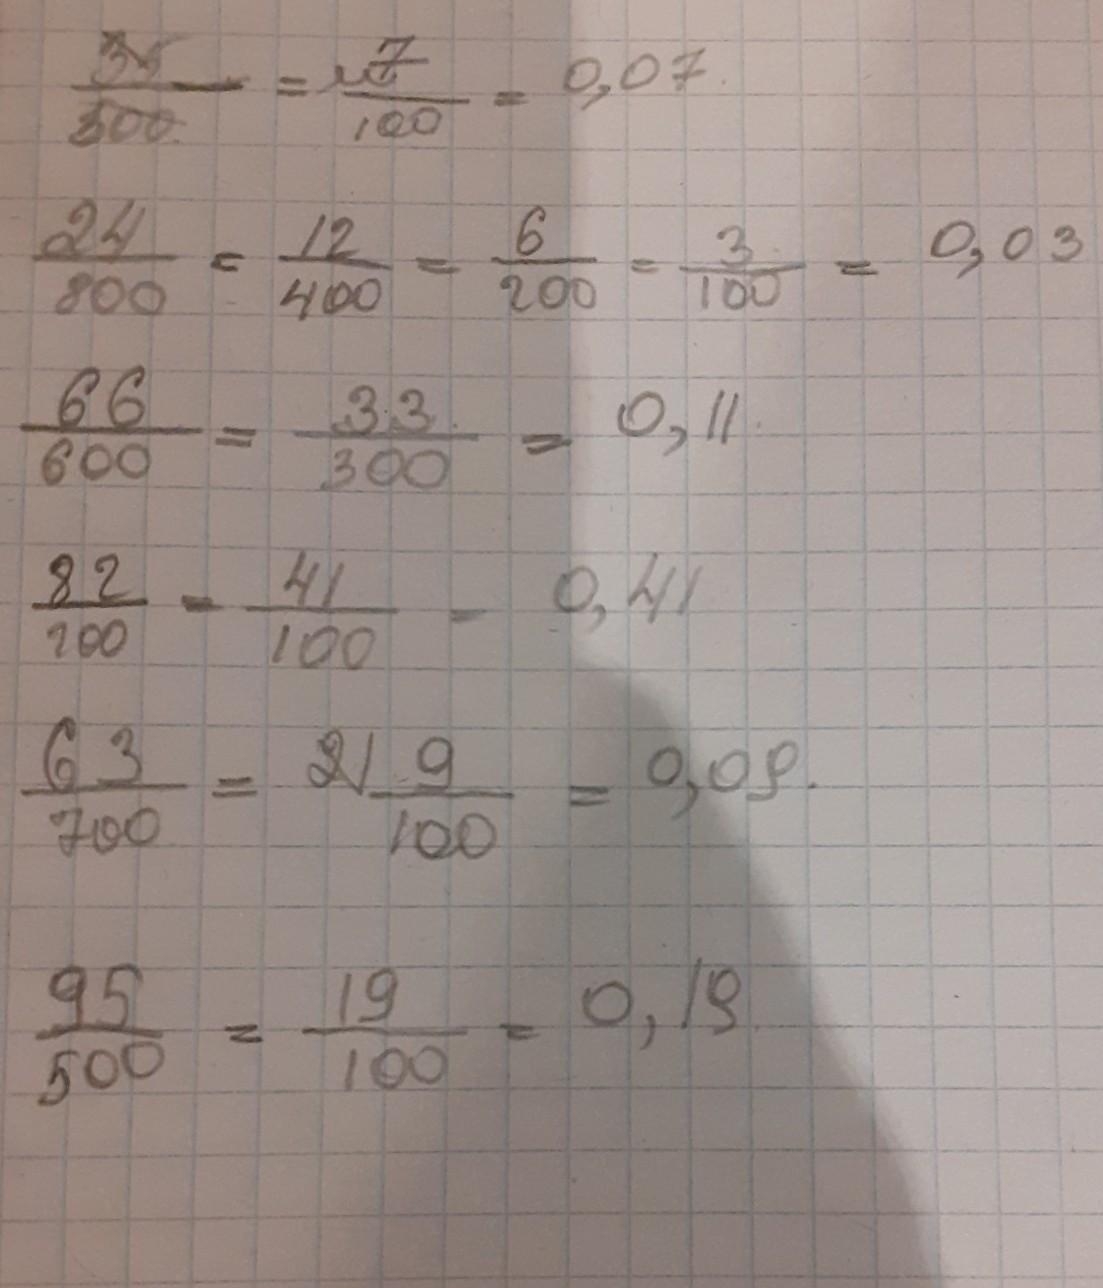 35/500 = 7/100 = 0,07.
24/800 = 12/400 = 6/200 = 3/100 = 0,03
66/600 = 33/300 = 0,11.
82/200 = 41/100 = 0,41
63/700 = 9/100 = 0,09.
95/500 = 19/100 = 0,19